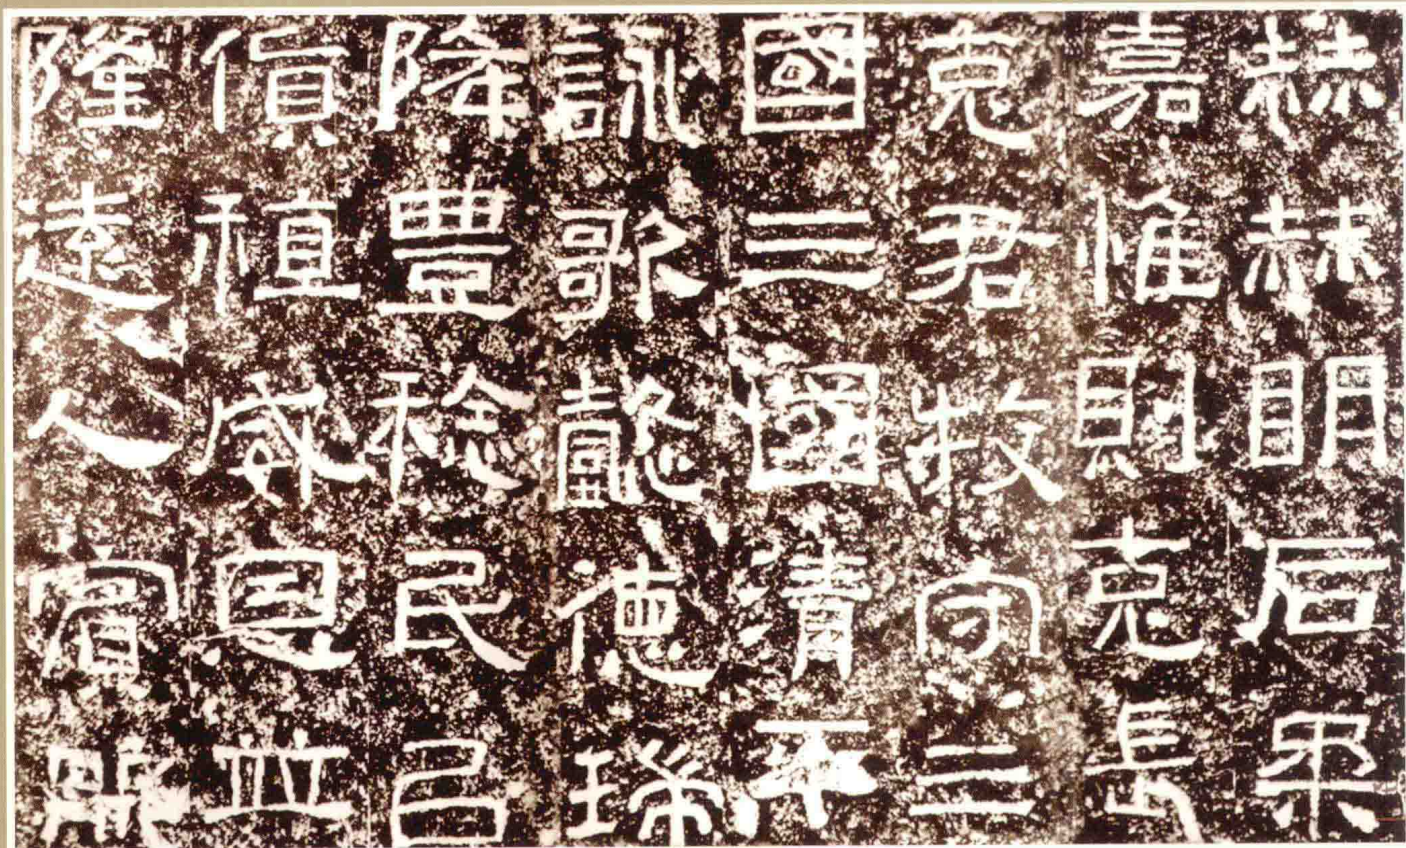 赫赫明后柔
嘉惟則克長
克君牧守三
國三國清平
詠歌懿德瑞
降豐稔民以
貨稙威恩並
隆遠人賓服